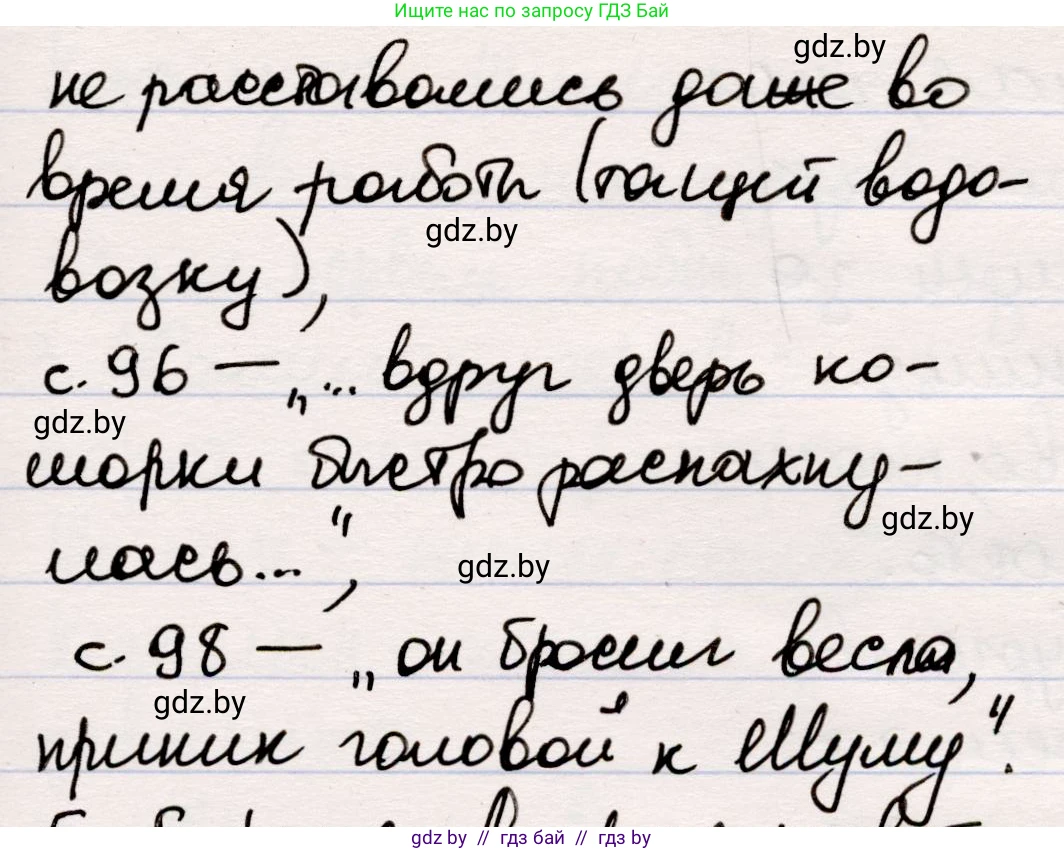 Ищите нас по запросу ГДЗ Бай
gdz.by
не расставались даже во
время работы (тащит водо-
gdz.by
возку),
с. 96 — „... вдруг дверь ко-
gdz.by
морки быстро распахну-
gdz.by
лась...",
gdz.by
с. 98 — „он бросил весла,
gdz.by
приник головой к Муму".
gdz.by // гдз бай // гдз by